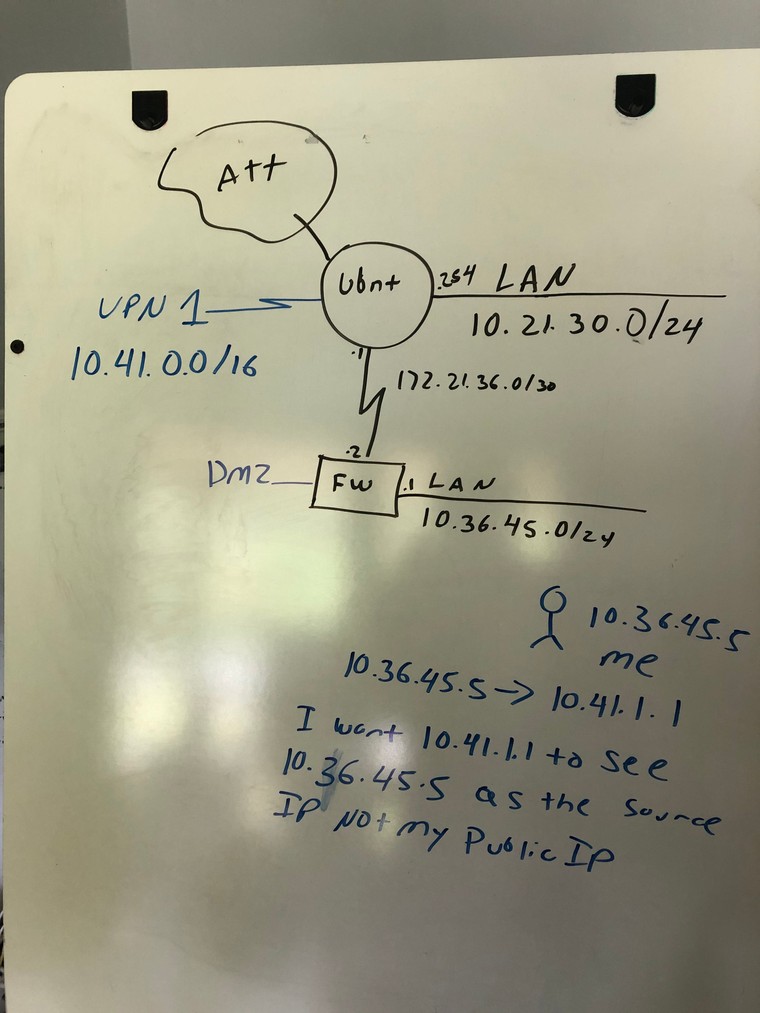 Att
Ubnt
.254 LAN
10.21.30.0/24
VPN 1
10.41.0.0/16
.1
172.21.36.0/30
.2
DMZ
FW
.1 LAN
10.36.45.0/24
10.36.45.5
me
10.36.45.5 → 10.41.1.1
I want 10.41.1.1 to see
10.36.45.5 as the source
IP not my Public IP